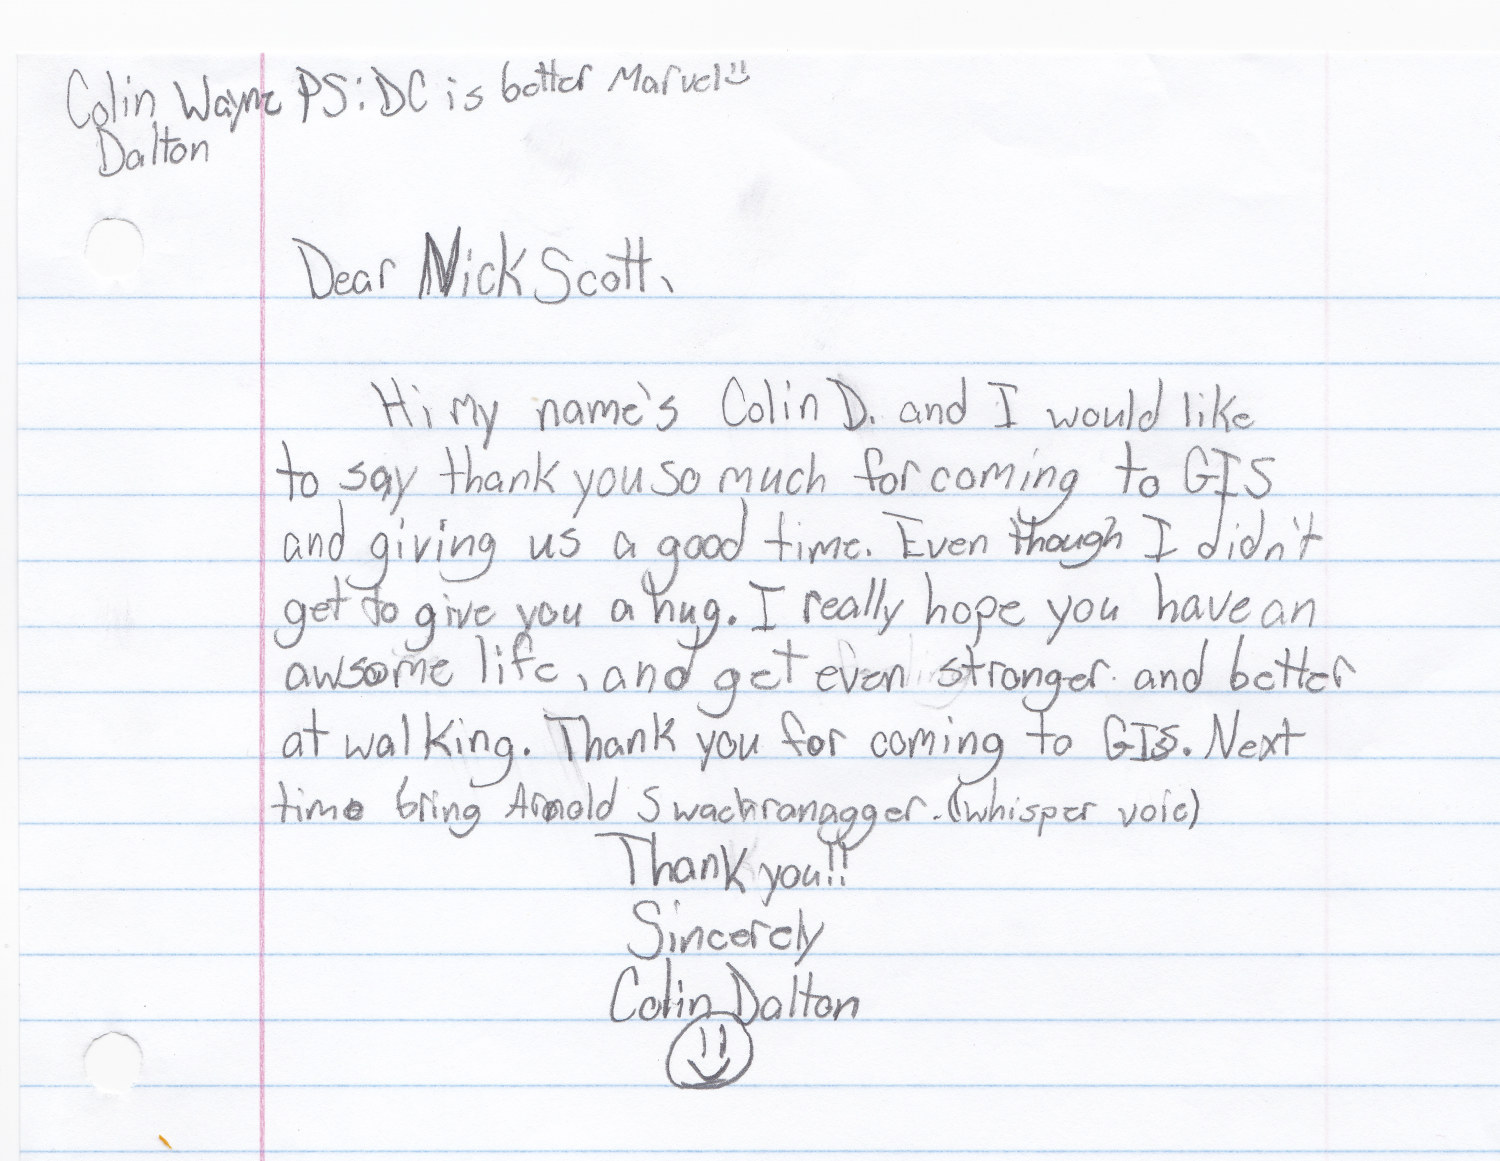 Colin Wayne PS: DC is better Marvel!!
Dalton
Dear Nick Scott,
Hi my name's Colin D. and I would like
to say thank you so much for coming to GIS
and giving us a good time. Even though I didn't
get to give you a hug. I really hope you have an
awsome life, and get even stronger and better
at walking. Thank you for coming to GIS. Next
time bring Arnold Swachranagger. (whisper voic)
Thank you!!
Sincerely
Colin Dalton